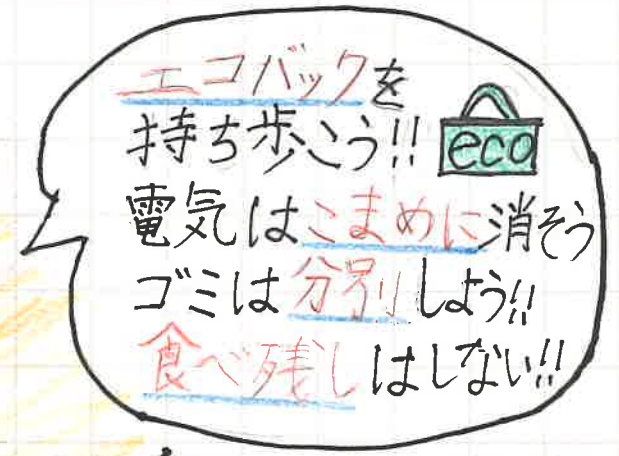 エコバックを
持ち歩こう!!
eco
電気はこまめに消そう
ゴミは分別しよう!!
食べ残しはしない!!